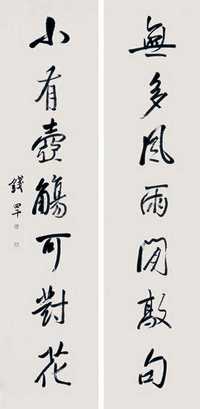 無多風雨閒敲句
小有壺觴可對花
錢罕